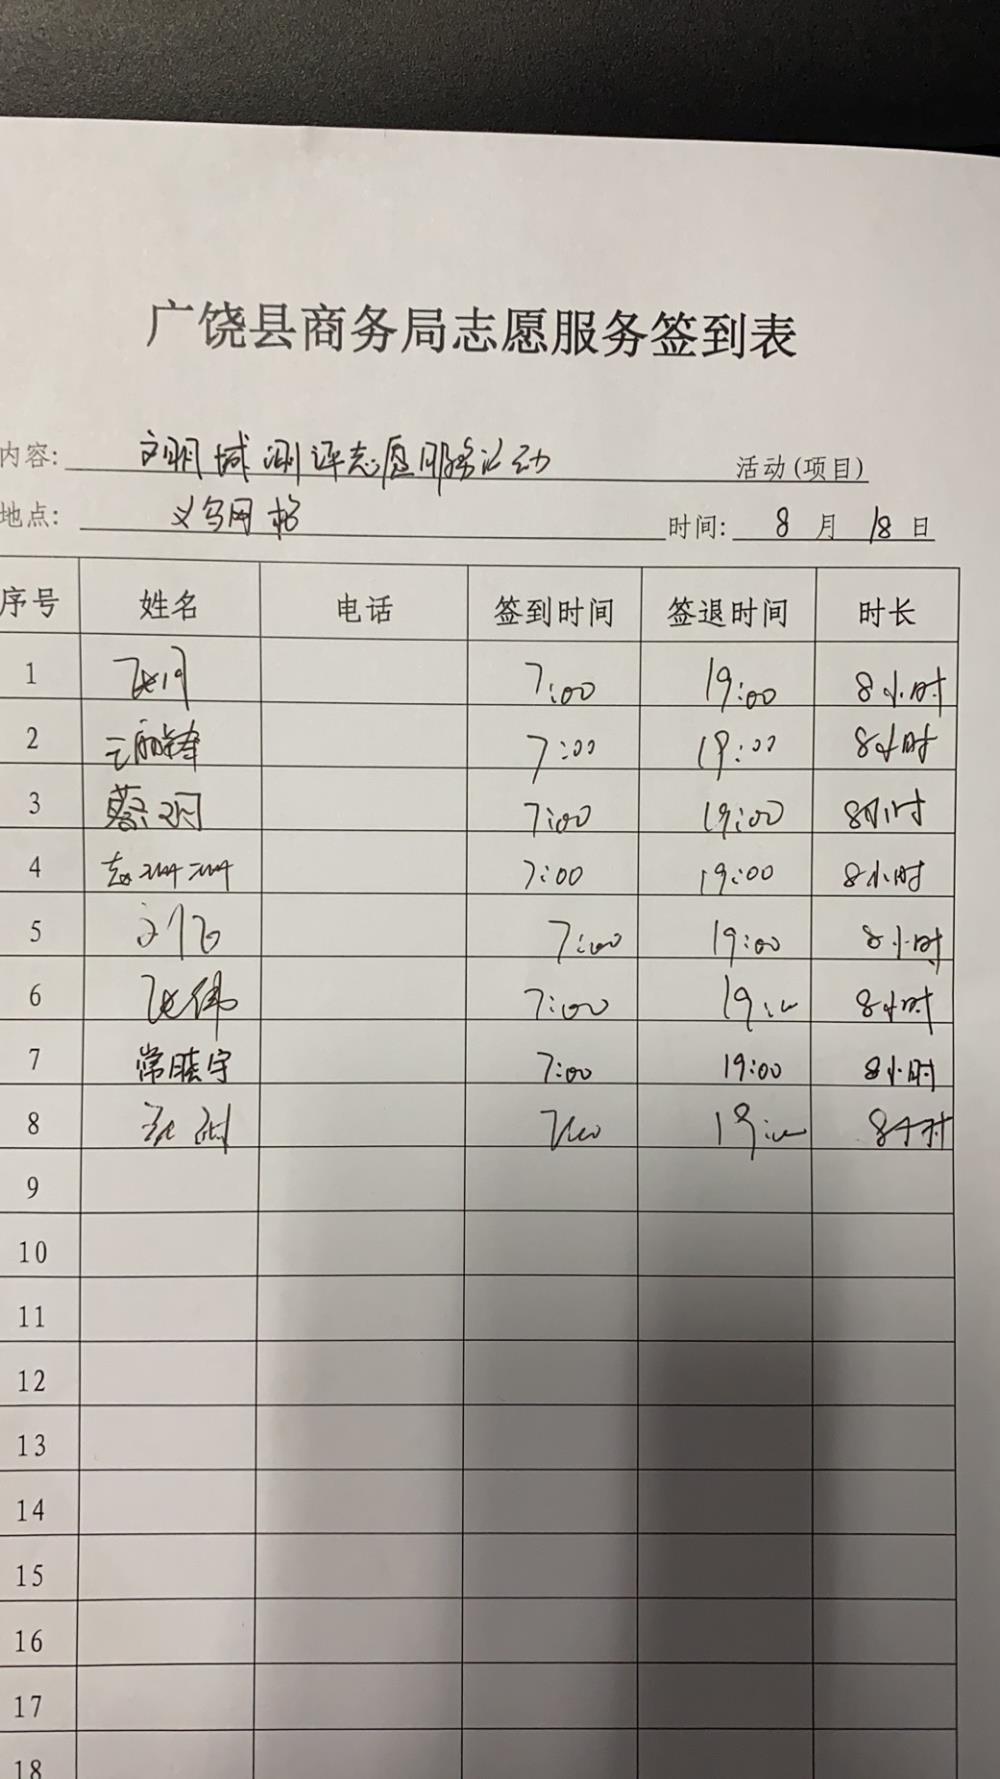 广饶县商务局志愿服务签到表
内容: 文明城测评志愿服务活动 活动(项目)
地点: 义乌网格 时间: 8 月 18 日
序号 姓名 电话 签到时间 签退时间 时长
1 7:00 19:00 8小时
2 7:00 19:00 8小时
3 蔡 7:00 19:00 8小时
4 7:00 19:00 8小时
5 刘飞 7:00 19:00 8小时
6 张伟 7:00 19:00 8小时
7 常晓宇 7:00 19:00 8小时
8 7:00 19:00 8小时
9
10
11
12
13
14
15
16
17
18